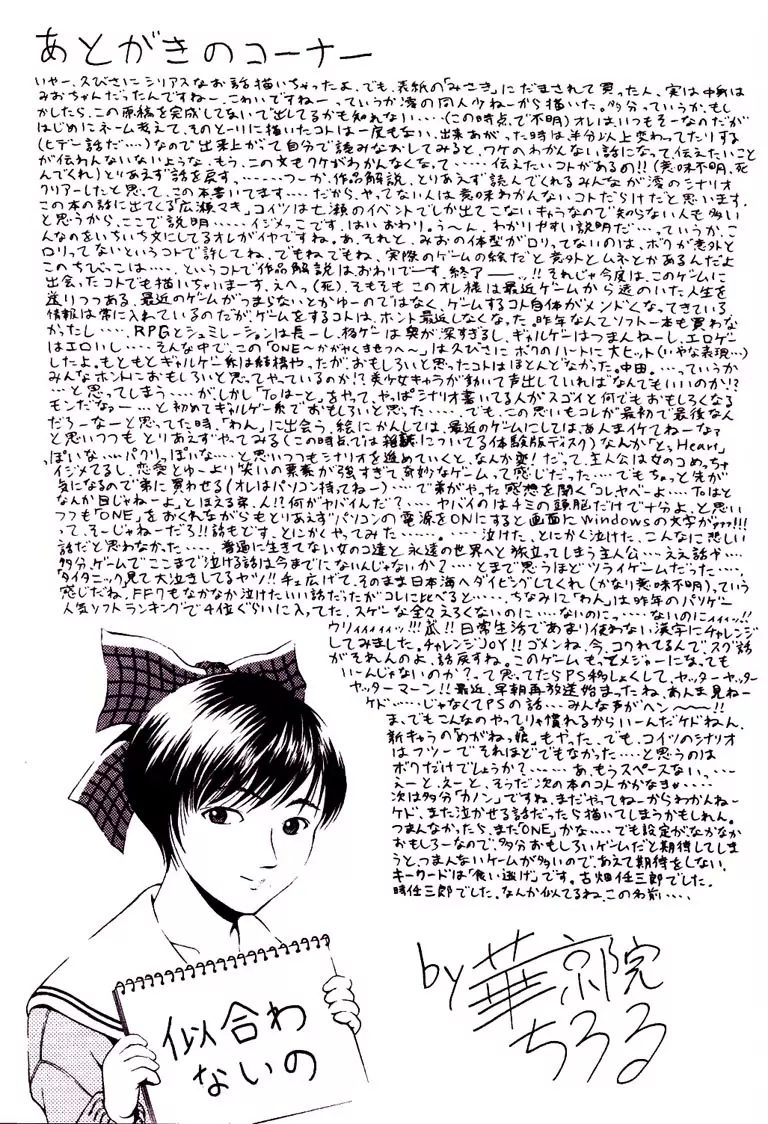 あとがきのコーナー
いやー、久びさにシリアスなお話描いちゃったよ、でも、表紙の「みさき」にだまされて買った人、実は中身は
みおちゃんだったんですねー、こわいですねー、っていうか澪の同人少ねーから描いた。多分っていうか、もし
かしたら、この原稿を完成してないで出してるかも知れない‥‥(この時点で不明)オレは、いつもそーなのだが
はじめにネーム考えて、そのとーりに描いたコトは一度もない、出来あがった時は半分以上変わってたりする
(ヒデー話だ‥‥)なので出来上がって自分で読みなおしてみると、ワケのわかんない話になって、伝えたいこと
が伝わんないないような、もう、この文もワケがわかんなくなって‥‥‥伝えたいコトがあるの!!(意味不明、死
んでくれ)とりあえず話を戻す、‥‥‥つーか、作品解説、とりあえず読んでくれるみんなが澪のシナリオ
クリアーしたと思って、この本書いてます‥‥だから、やってない人は意味わかんないコトだらけだと思います、
この本の話に出てくる「広瀬マキ」コイツは七瀬のイベントでしか出てこないキャラなので知らない人も多い
と思うから、ここで説明‥‥‥イジメっこです、はいおわり。う〜ん、わかりやすい説明だ‥‥っていうか、こ
んなのをいちいち文にしてるオレがイヤですね。あ、それと、みおの体型がロリってないのは、ボクが意外と
ロリってないというコトで許してね、でもねでもね、実際のゲームの絵だと意外とムネとかあるんだよ
このちびっこは‥‥、というコトで作品解説はおわりでーす、終了ァーーッ!!それじゃ今度は、このゲームに
出会ったコトでも描いちゃいまーす、えへっ(死)、そもそもこのオレ様は最近ゲームから遠のいた人生を
送りつつある、最近のゲームがつまらないとかゆーのではなく、ゲームするコト自体がメンドくなってきている
情報は常に入れているのだが、ゲームをするコトは、ホント最近しなくなった、昨年なんてソフト一本も買わな
かったし‥‥、RPGとシュミレーションは長ーし、格ゲーは奥が深すぎるし、ギャルゲーはつまんねーし、エロゲー
はエロいし‥‥そんな中で、この「ONE〜かがやくきせつへ〜」は久びさにボクのハートに大ヒット(いやな表現‥)
したよ。もともとギャルゲー系は結構やったが、おもしろいと思ったコトはほとんどなかった。中田、‥‥っていうか
みんなホントにおもしろいと思ってやっているのか!?美少女キャラが動いて声出していればなんでもいいのか!?
‥‥と思ってしまう‥‥がしかし「Toはーと」をやって、やっぱシナリオ書いてる人がスゴイと何でもおもしろくなる
モンだなぁー‥‥と初めてギャルゲー系でおもしろいと思った‥‥‥、でも、この思いもコレが最初で最後なん
だろーなーと思ってた時、「わん」に出会う、絵にかんしては、最近のゲームにしては、あんまイケてねーなァ
と思いつつもとりあえずやってみる(この時点では雑誌についてる体験版ディスク)なんか「とぅHeart」
っぽいな‥‥パクリっぽいな‥‥と思いつつもシナリオを進めていくと、なんか変!だって、主人公は女のコめっちゃ
イジメてるし、恋愛とゆーより笑いの要素が強すぎて奇妙なゲームって感じだった‥‥でもちょっと先が
気になるので弟に買わせる(オレはパソコン持ってねー)‥‥で弟がやった感想を聞く「コレヤベーよ‥‥Toはーと
なんか目じゃねーよ」とほえる弟、人!?何がヤバイんだ?‥‥、ヤバイのはチミの頭脳だけで十分よ、と思い
つつも「ONE」をおくれながらもとりあえずパソコンの電源をONにすると画面にWindowsの文字がァァァ!!!
って、そーじゃねーだろ!!話もどす、とにかくやってみた‥‥‥。‥‥‥泣けた、とにかく泣けた、こんなに悲しい
話だと思わなかった‥‥、普通に生きてない女のコ達と永遠の世界へと旅立ってしまう主人公‥‥ええ話や‥‥
多分、ゲームでここまで泣ける話は今までにないんじゃないか?‥‥とまで思うほどツライゲームだった‥‥、
「タイタニック」見て大泣きしてるヤツ!!チェ広げて、そのまま日本海へダイビングしてくれ(かなり意味不明)っていう
感じだね、FF7もなかなか泣けたいい話だったがコレに比べると‥‥、ちなみに「わん」は昨年のパソゲー
人気ソフトランキングで4位ぐらいに入ってた、スゲーな全々えろくないのに‥‥ないのにっ‥‥ないのにィィィッ!!
ウリィィィィィッ!!!瓜!!日常生活であまり使わない漢字にチャレンジ
してみました。チャレンジJOY!!ゴメンね、今、コワれてるんでスグ話
がそれんのよ、話戻すね。このゲームもってメジャーになっても
いーんじゃないのか?って思ってたらPS移しょくして、ヤッターヤッター
ヤッターマーン!!最近、早朝再放送始まったね、あんま見ねー
ケド‥‥じゃなくてPSの話‥‥みんな声がヘン〜〜〜!!
ま、でもこんなのやってりゃ慣れるからいーんだケドねん、
新キャラの「めがねっ娘」もやった、でも、コイツのシナリオ
はフツーでそれほどでもなかった‥‥と思うのは
ボクだけでしょうか?‥‥‥、あ、もうスペースない、‥‥
えーと、えーと、そうだ次の本のコトかかなきゃ‥‥‥
次は多分「カノン」ですね、まだやってねーからわかんねー
ケド、また泣かせる話だったら描いてしまうかもしれん。
つまんなかったら、また「ONE」かな‥‥でも設定がなかなか
おもしろーなので、多分おもしろいゲームだと期待してしま
うと、つまんないゲームが多いので、あえて期待をしない、
キーワードは「食い逃げ」です。古畑任三郎でした。
時任三郎でした。なんか似てるね、この名前‥‥、
by 華京院
ちろる
似合わ
ないの